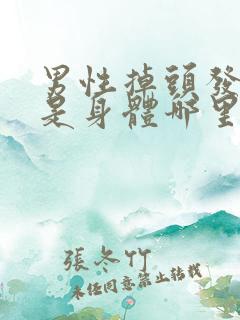 男性掉頭發
是身體哪里
張冬竹
未经同意禁止转载